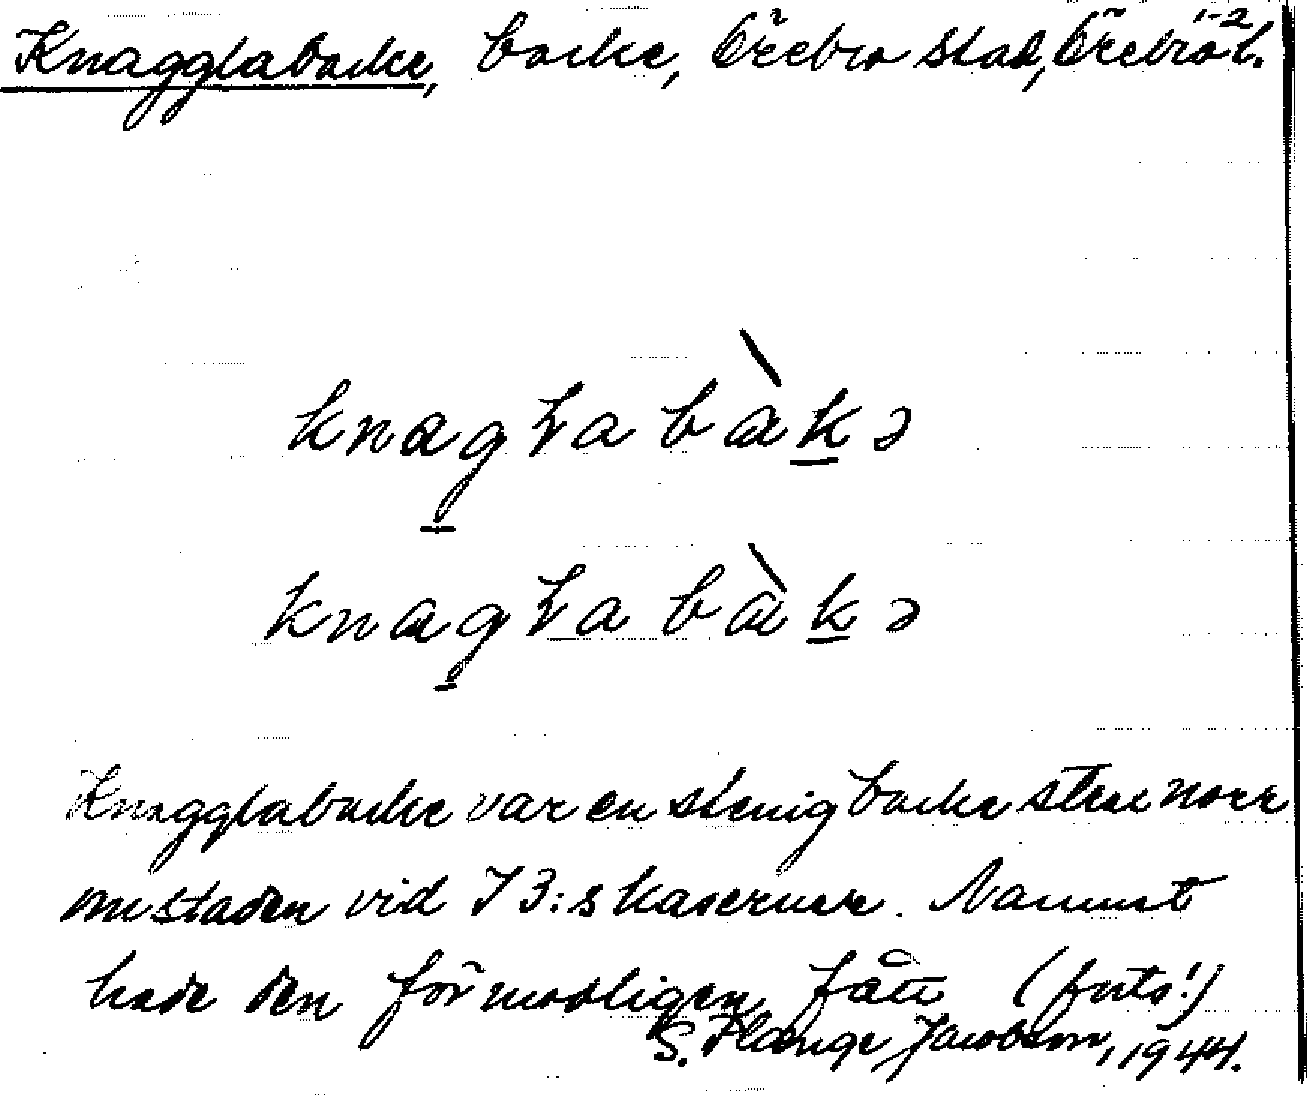 Knagglabacke, backe, Örebro stad, Örebro l. 1-2
knagɫa bàkə
knagɫa bàkə
Knagglabacke var en stenig backe strax norr
om staden vid I 3:s kaserner. Namnet
hade den förmodligen fått (forts!)
S. Hænge Jacobson, 1944.